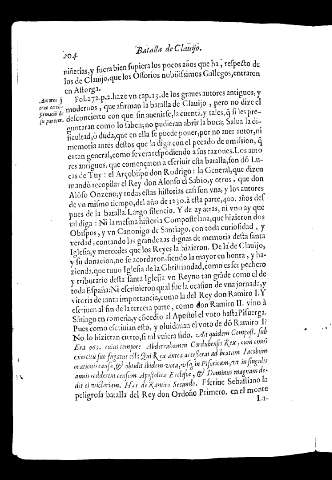 204 Batalla de Clauijo.
niñetlas, y fuera bien supiera los pocos años que ha, respecto de
los de Clauijo, que los Ossorios nobilissimos Gallegos, entraron
en Astorga.
Fol. 272. p. 2. haze vn cap. 13. de los graues autores antiguos, y
modernos, que afirman la batalla de Clauijo, pero no dize el
desconcierto con que
guntaran como lo saben, no pudieran abrir la boca. Salua la
ficultad, o duda, que en ella se puede poner, por no auer autor, ni
memoria antes destos que la diga con el pecado de omission,
estan general, como se vera respondiendo a sus razones. Los auto
res antiguos, que començaron a escriuir esta batalla, son dõ Lu-
cas de Tuy: el Arçobispo don Rodrigo: la General, que dizen
mandò recopilar el Rey don Alonso el Sabio, y otros, que don
Alõso Onzeno, y todas estas historias casi son vna, y los autores
de vn mismo tiempo, del año de 1230. a esta parte, 400. años des
pues de la batalla. Largo silencio. Y de 27 atras, ni vno ay que
tal diga: Ni la mesma historia Compostelana, que hizieron dos
Obispos, y vn Canonigo de Santiago, con toda curiosidad, y
verdad, contando las grandezas dignas de memoria desta santa
Iglesia, y mercedes que los Reyes la hizieron. De la de Clauijo,
y su donacion, no se acordaron, siendo la mayor en honra, y ha-
zienda, que tuuo Iglesia de la Christiandad, como es ser pechero
y tributario desta santa Iglesia vn Reyno tan grãde como el de
toda España: Ni escriuieron qual fue la ocasion de vna jornada, y
vitoria de tanta importancia, como la del Rey don Ramiro I. Y
escriuen al fin de la tercera parte, como don Ramiro II. vino à
Santiago en romeria, y cõcedio al Apostol el voto hasta Pisuerga.
Pues como escriuian esto, y oluidauan el voto de dõ Ramiro I?
No lo hizieran cierto, si tal vuiera sido. At quidem Compost. sub
Era 972. cuius tempore Abderrahamen Cordubensis Rex, cum omni
exercitu suo fugatus est: Qui Rex antea accesserat ad beatum Iacobum
orationis causa, & obtulit ibidem vota, vsq; in Pisoricam, vt in singulis
annis redderent censum Apostolica Ecclesia, & Dominus magnam de-
dit ei victoriam. Hac de Ramiro Secundo. Escriue Sebastiano la
peligrosa batalla del Rey don Ordoño Primero, en el monte
La-